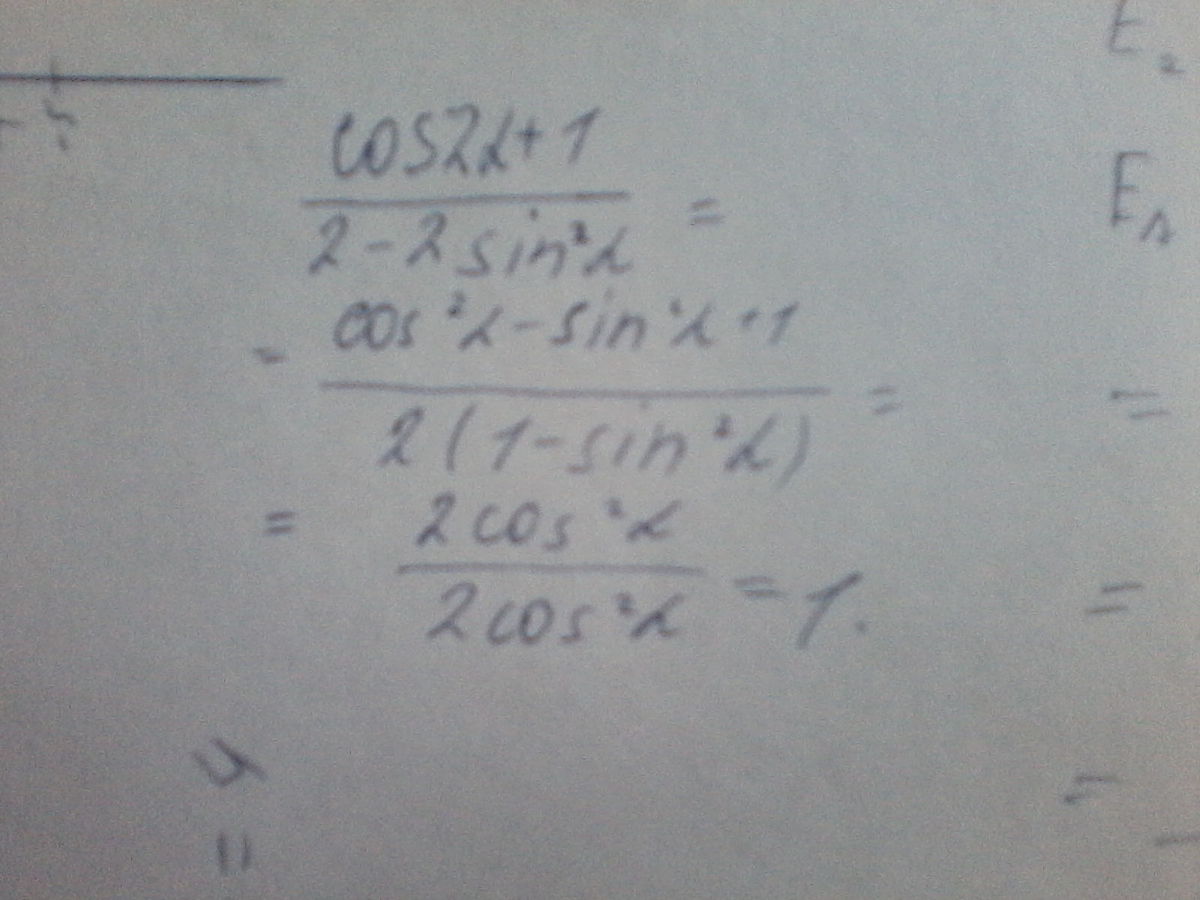 cos2α+1
2-2sin²α =
= cos²α-sin²α+1
2(1-sin²α) =
= 2cos²α
2cos²α = 1.
E₂
E₁
=
=
=